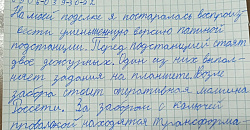 На моей поделке я постаралась воспроиз
вести уменьшенную версию
подстанции. Перед подстанцией стоят
двое дежурных. Один из них выпол-
няет задания на планшете. Возле
забора стоит оперативная машина
Россети. За забором с колючей
проволокой находятся трансформа